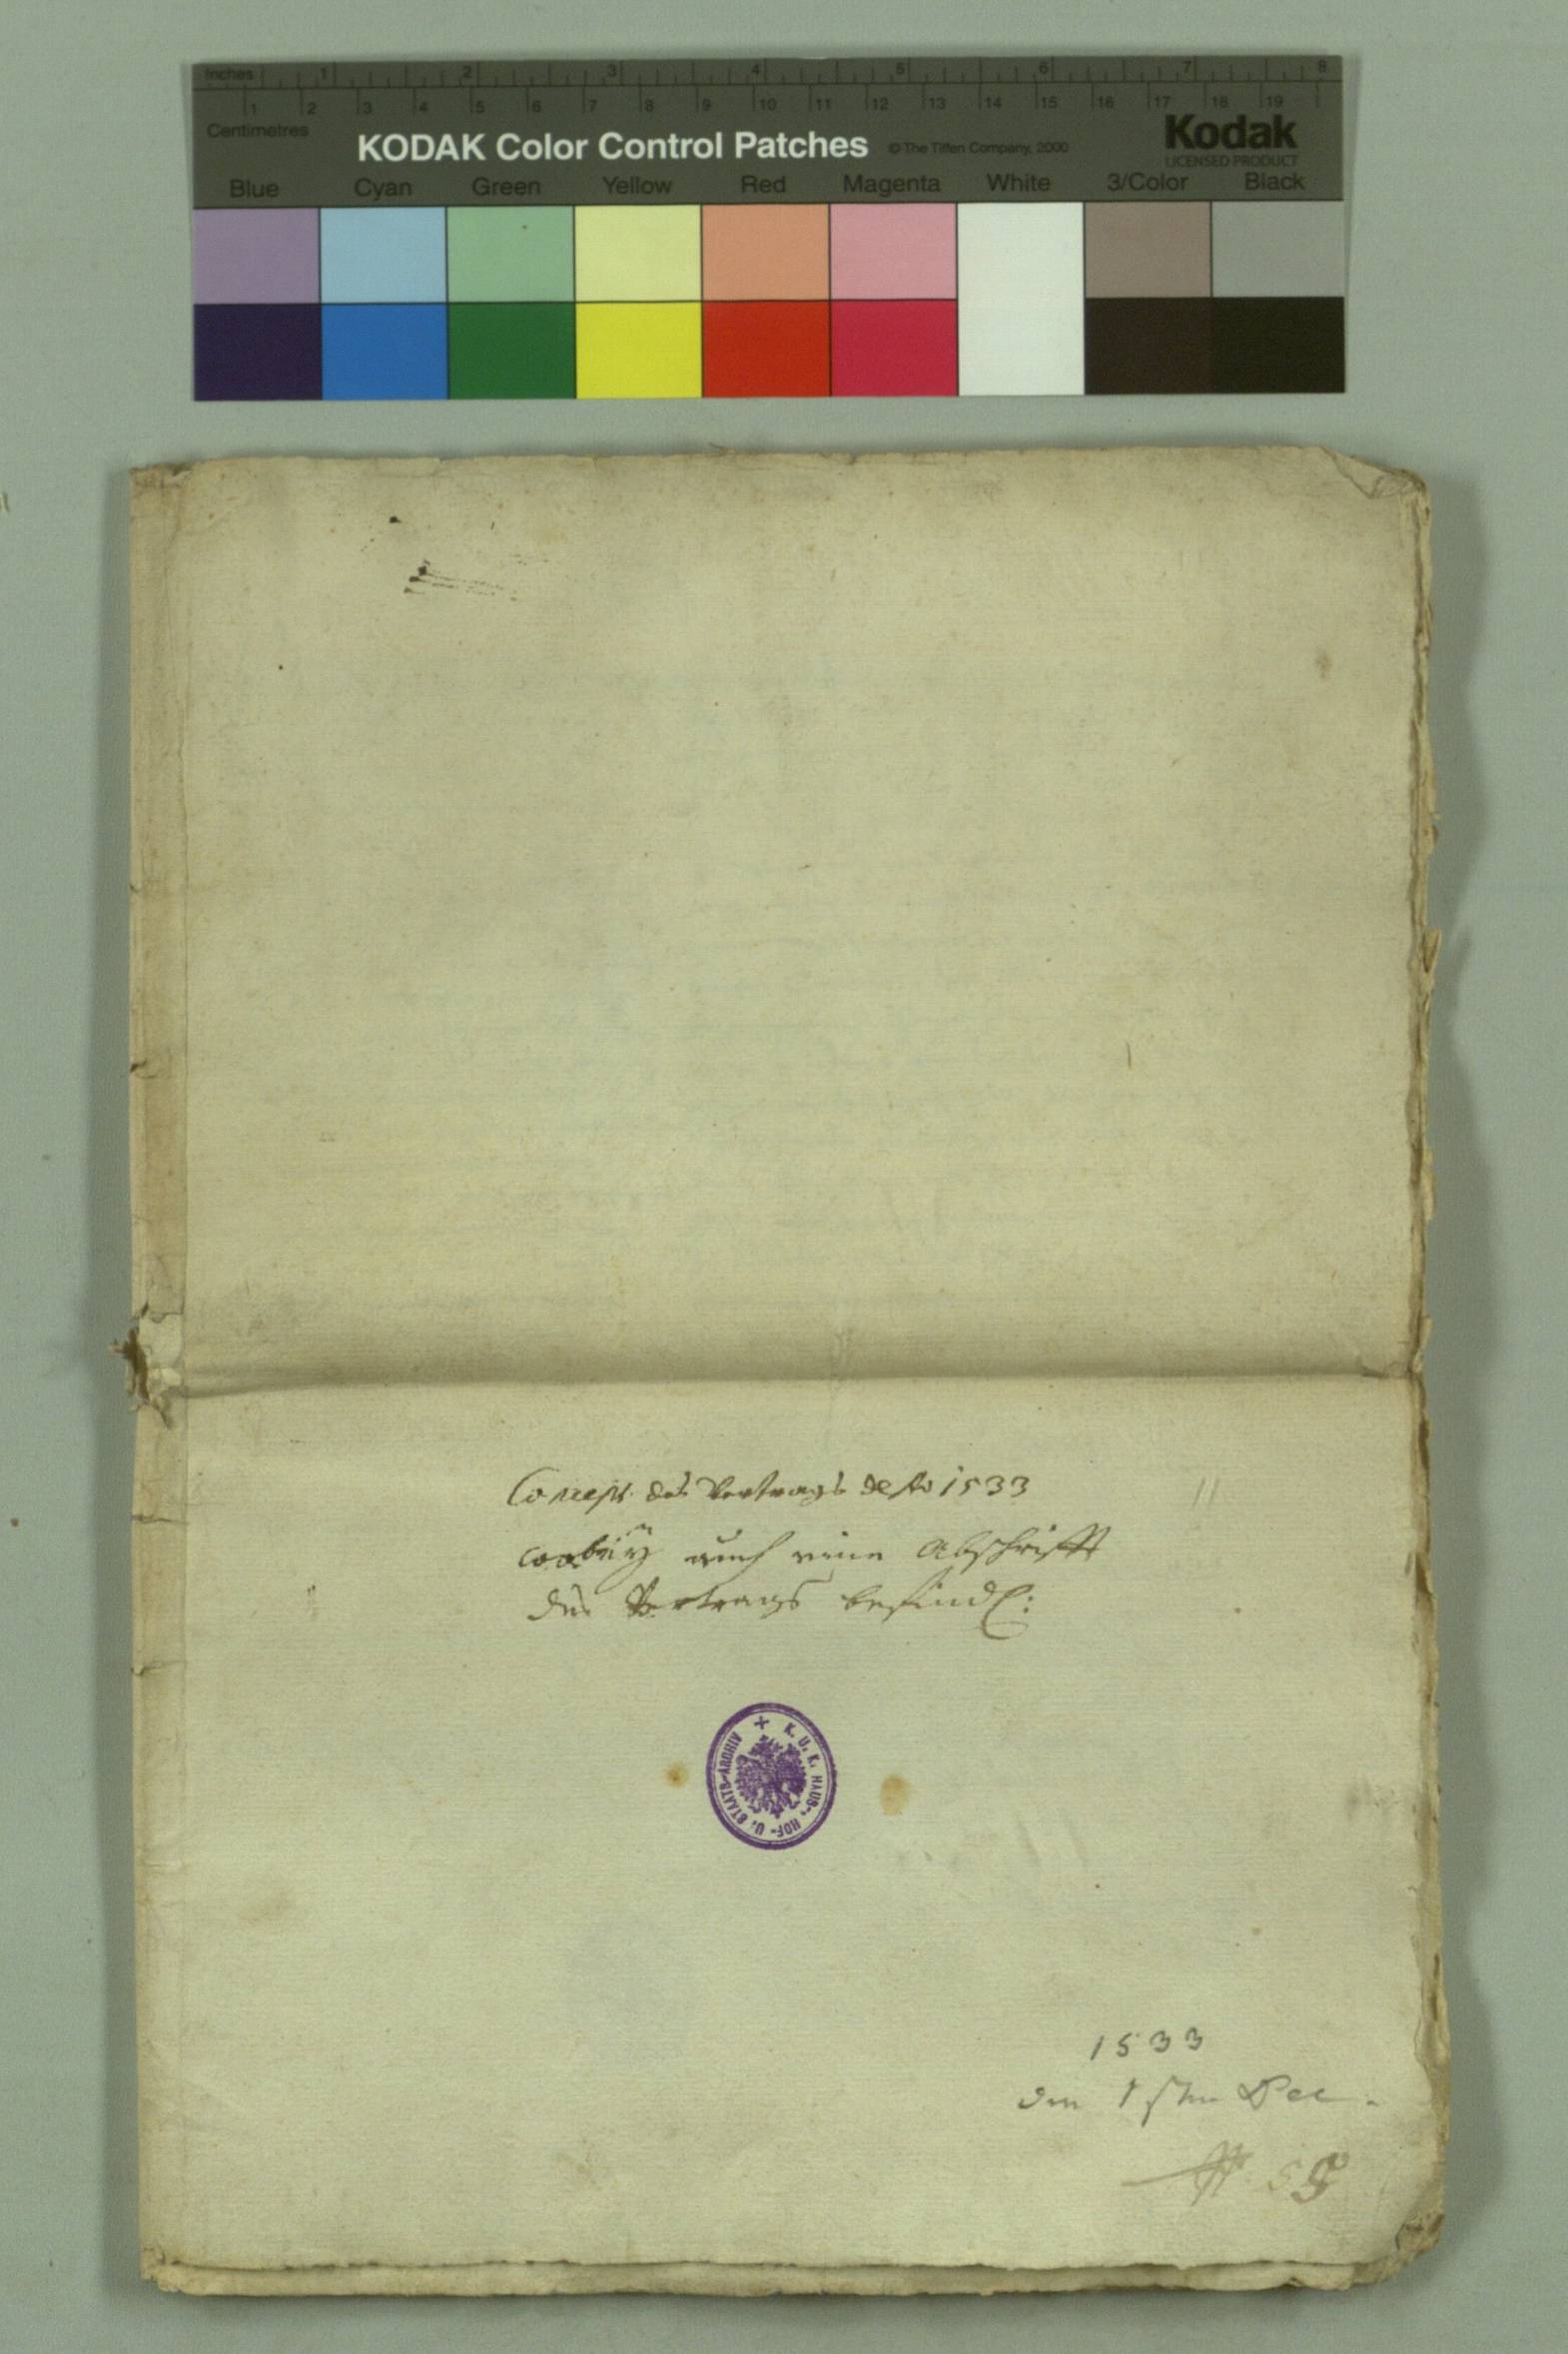 Inches 1 2 3 4 5 6 7 8
1 2 3 4 5 6 7 8 9 10 11 12 13 14 15 16 17 18 19
Centimetres
KODAK Color Control Patches © The Tiffen Company, 2000 Kodak
LICENSED PRODUCT
Blue Cyan Green Yellow Red Magenta White 3/Color Black
Concept des Vertrags de Ao 1533
wobeÿ auch eine Abschrifft
des Vertrags befindl:
K. U. K. HAUS-, HOF- U. STAATS-ARCHIV
1533
den 1sten Dec.